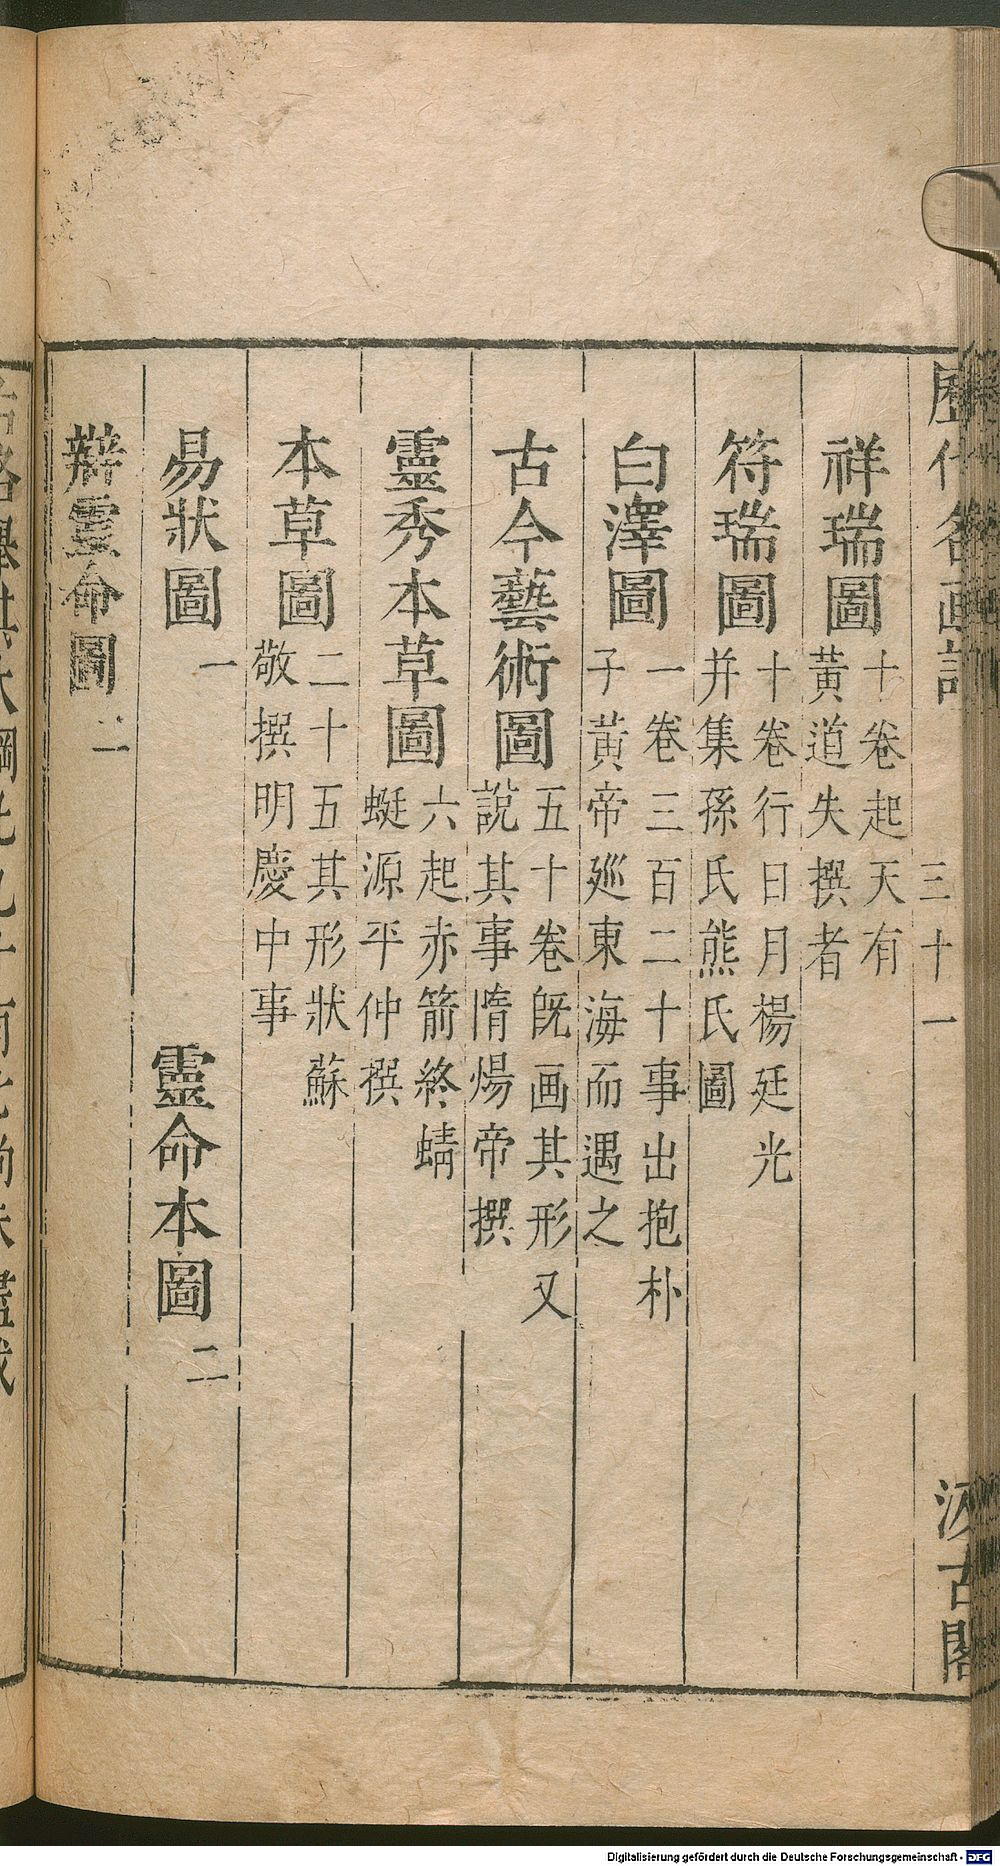 歷代名画記 三十一 汲古閣
祥瑞圖 十卷起天有
黃道失撰者
符瑞圖 十卷行日月楊廷光
并集孫氏熊氏圖
白澤圖 一卷三百二十事出抱朴
子黃帝廵東海而遇之
古今藝術圖 五十卷旣画其形又
說其事隋煬帝撰
靈秀本草圖 六起赤箭終蜻
蜓源平仲撰
本草圖 二十五其形狀蘇
敬撰明慶中事
易狀圖 一 靈命本圖 二
辯靈命圖 二
Digitalisierung gefördert durch die Deutsche Forschungsgemeinschaft - DFG